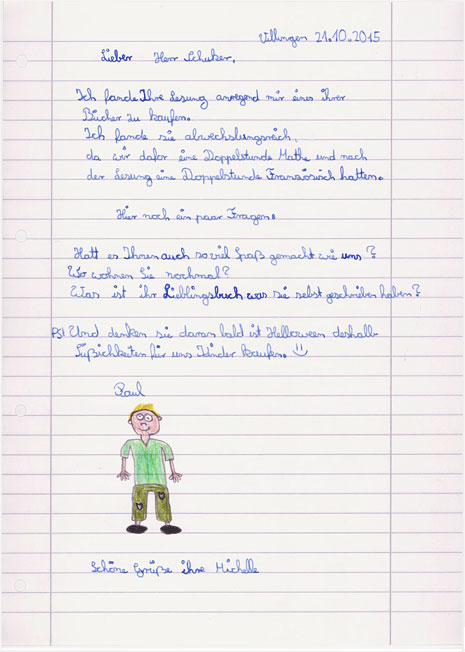 Villingen 21.10.2015
Lieber Herr Schulzer,
Ich fande Ihre Lesung anregend mir eines ihrer
Bücher zu kaufen.
Ich fande sie abwechslungsreich,
da wir dafor eine Doppelstunde Mathe und nach
der Lesung eine Doppelstunde Französisch hatten.
Hier noch ein paar Fragen.
Hatt es Ihnen auch so viel Spaß gemacht wie uns?
Wo wohnen Sie nochmal?
Was ist ihr Lieblingsbuch was sie selbst geschrieben haben?
PS! Und denken sie daran bald ist Helloween deshalb
Süßichkeiten für uns Kinder kaufen. :)
Paul
Schöne Grüße ihre Michelle